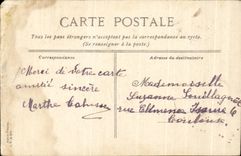 CARTE POSTALE
Tous les pays étrangers n'acceptent pas la correspondance au recto.
(Se renseigner à la poste).
Correspondance
Adresse du destinataire
Merci de votre carte
amitié sincère
Marthe
Mademoiselle
Suzanne
rue Clémence Isaure 6
Toulouse